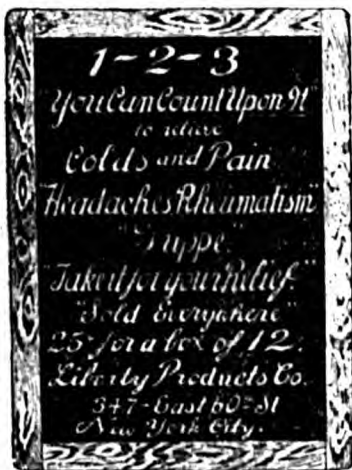 1-2-3
"You Can Count Upon It"
to relieve
Colds and Pain
"Headaches, Rheumatism"
"Grippe"
"Take it for your Relief."
"Sold Everywhere"
25¢ for a box of 12.
Liberty Products Co.
347-East 60th St
New York City.